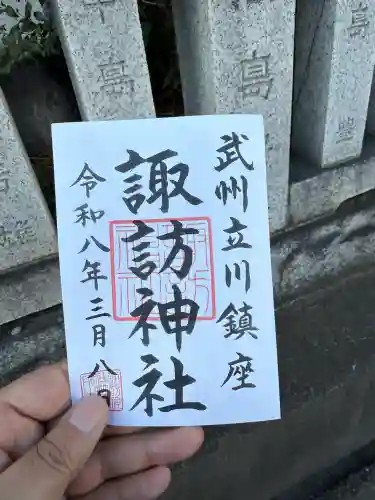 武州立川鎮座
諏訪神社
令和八年三月八日
中島
島
島
豊